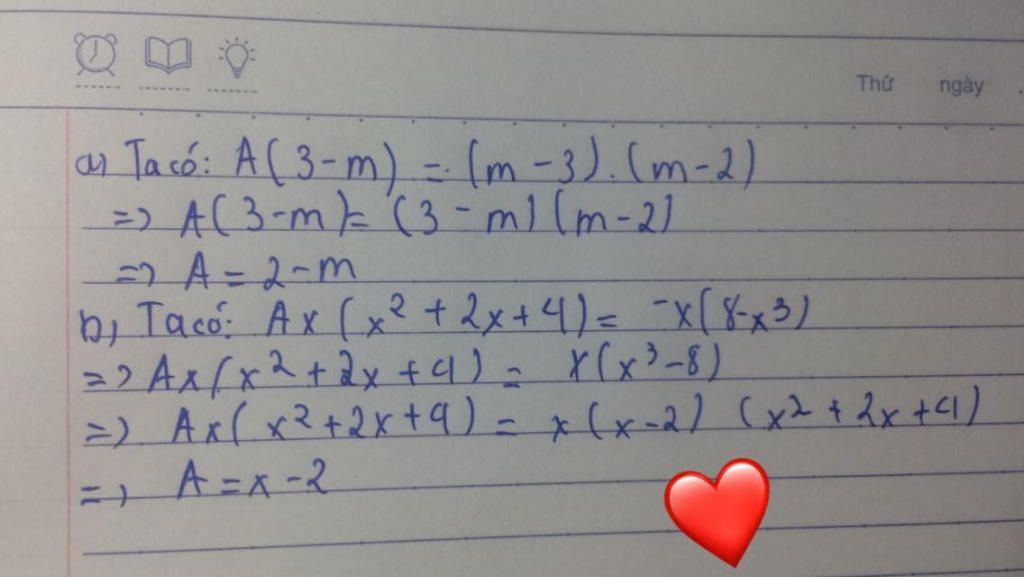 Thứ ngày
a) Ta có: A(3-m) = (m-3).(m-2)
=> A(3-m)= (3-m)(m-2)
=> A = 2-m
b, Ta có: Ax(x²+2x+4)= -x(8-x³)
=> Ax(x²+2x+4) = x(x³-8)
=> Ax(x²+2x+4) = x(x-2) (x²+2x+4)
=> A=x-2